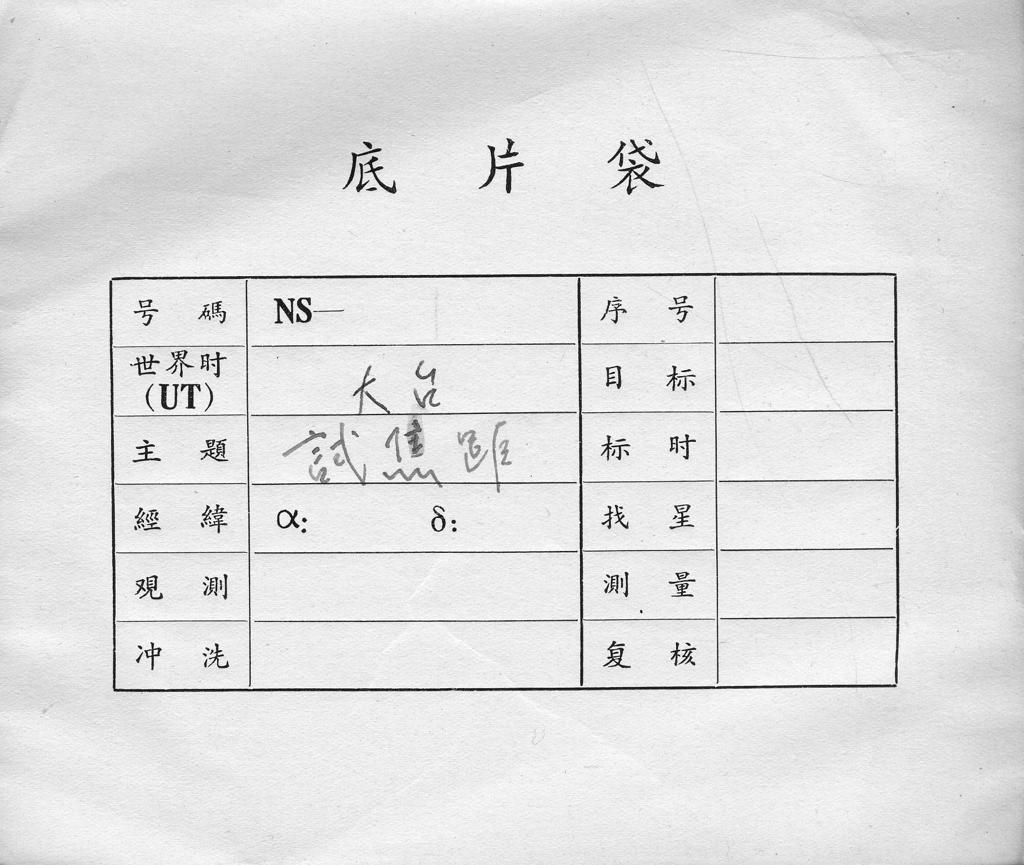 底片袋
号碼 NS— 序号
世界时 目标
(UT) 大台
主題 試焦距 标时
經緯 α: δ: 找星
观測 測量
冲洗 复核